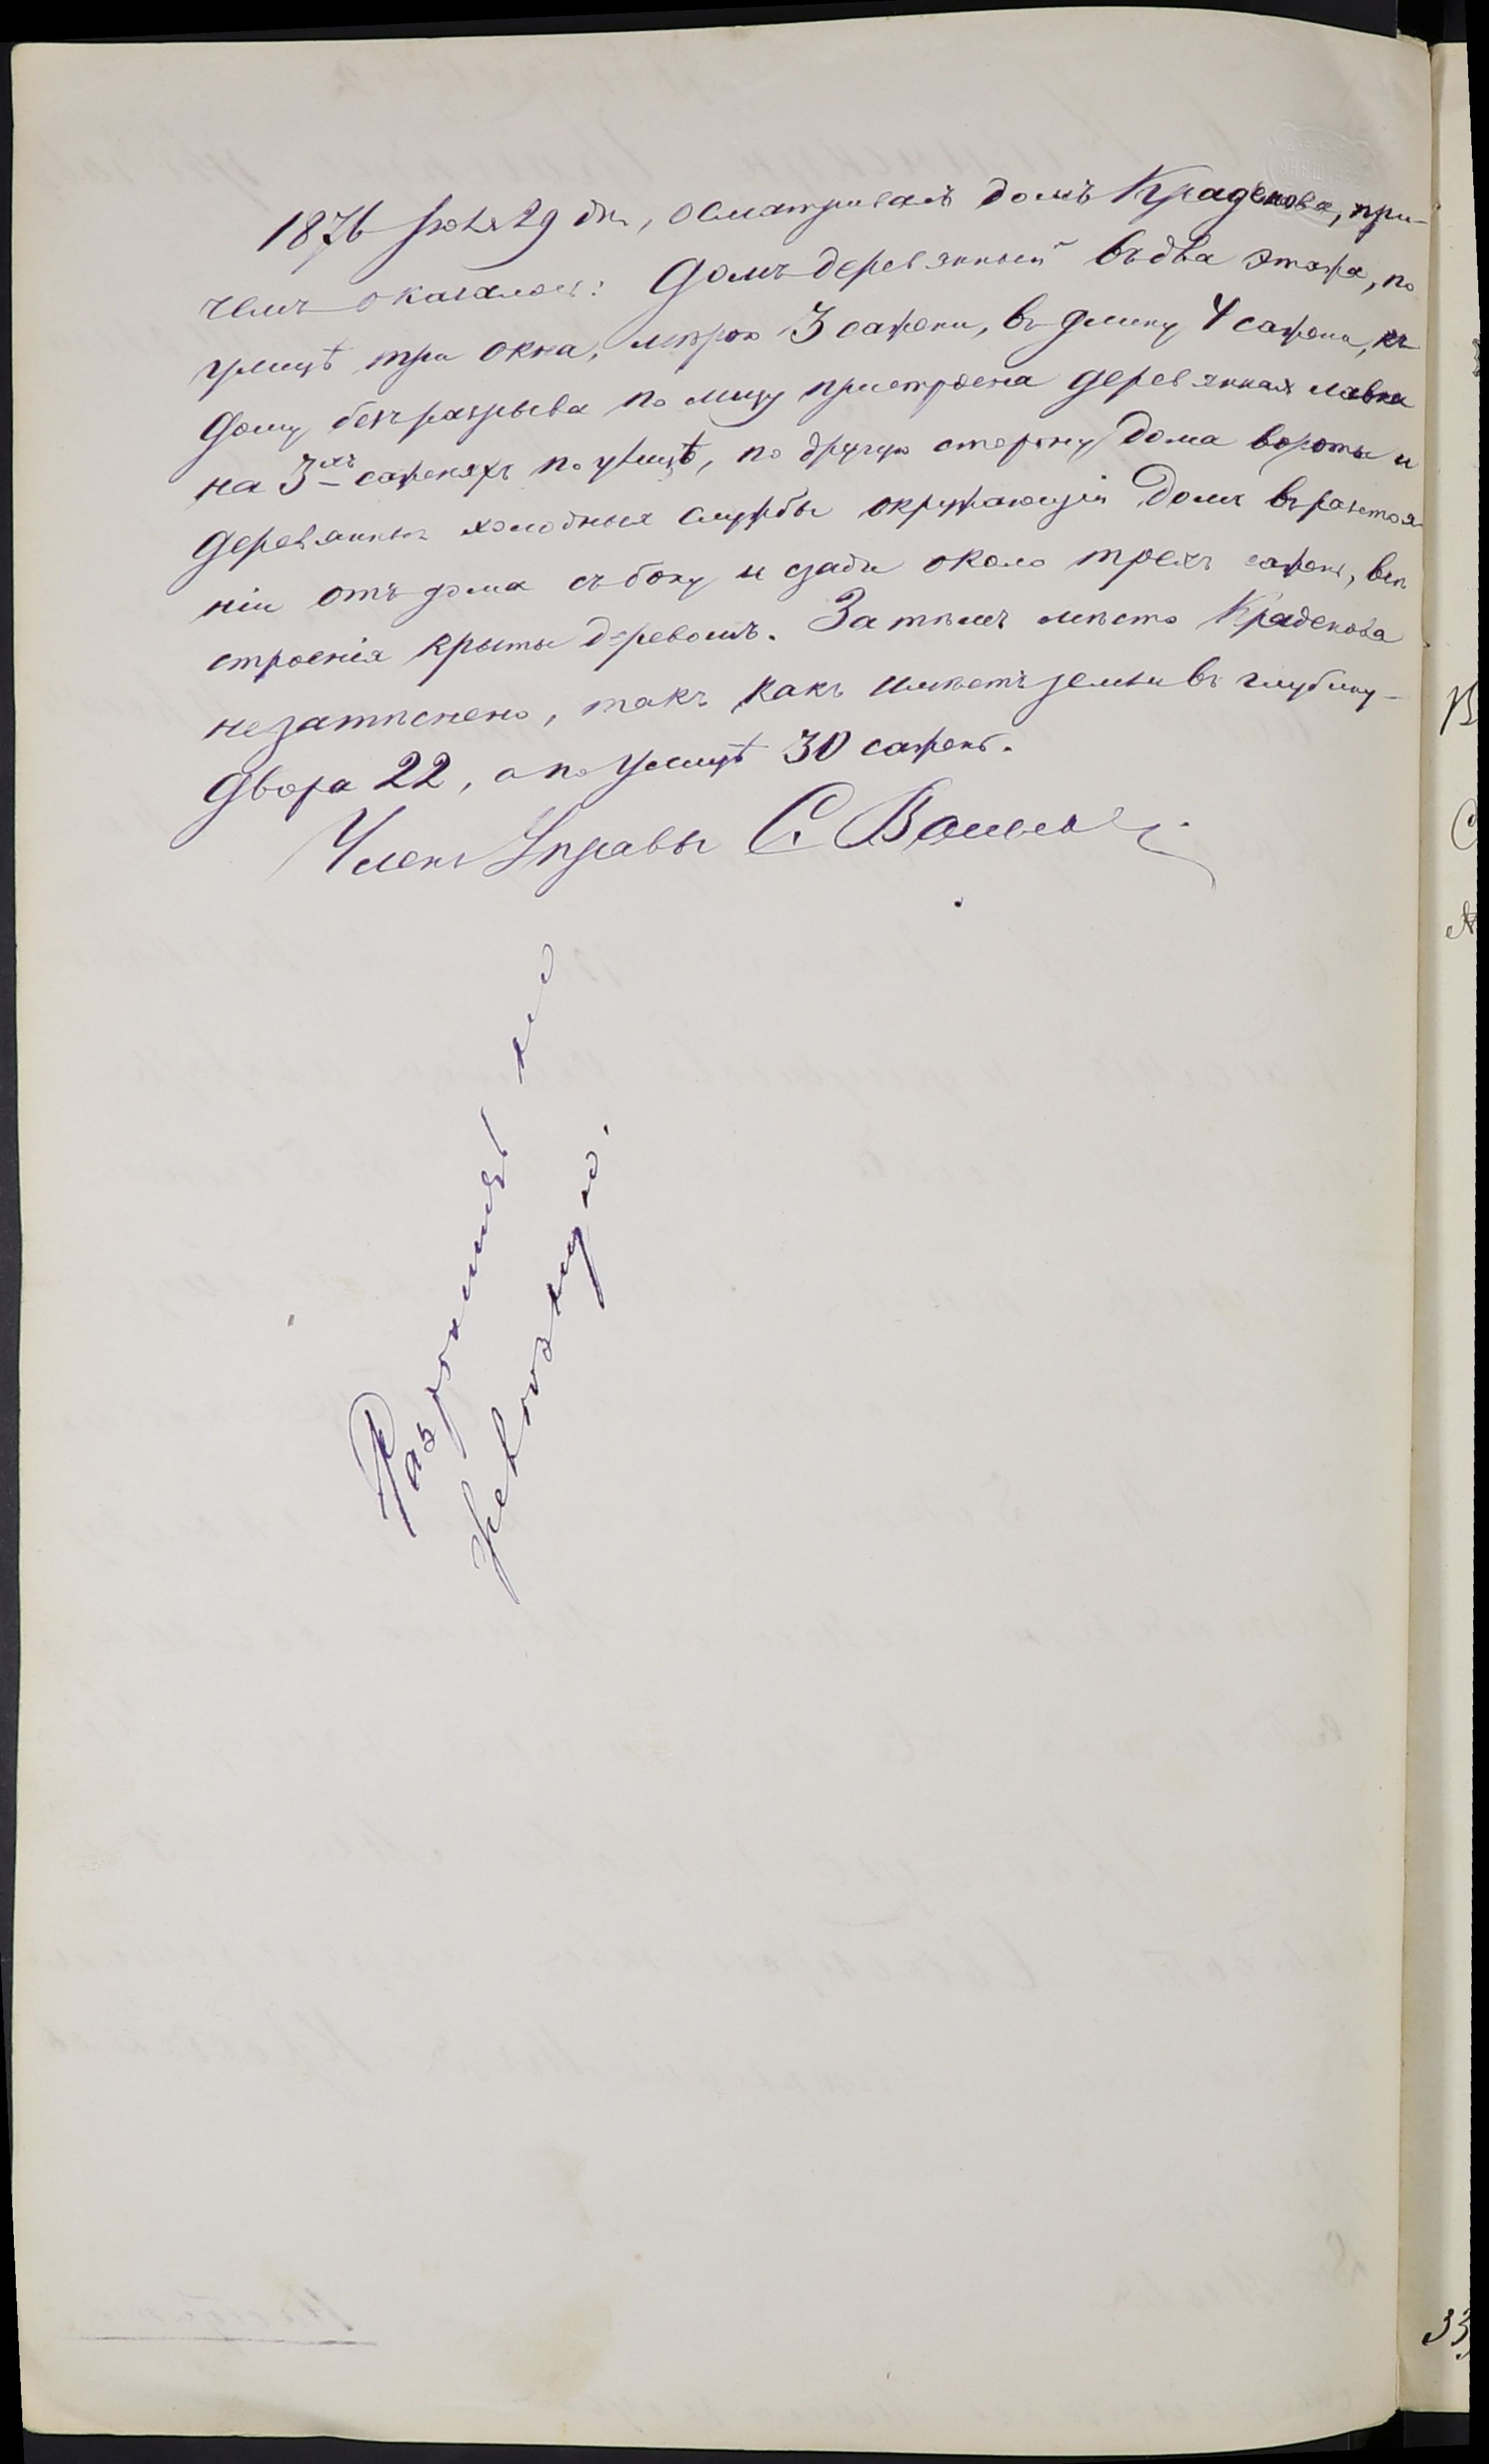 1876 Іюля 29 дн, осматривалъ домъ Краденова, при-
чемъ оказалось: Домъ деревянный въ два этажа, по
улицѣ три окна, мѣрою 3 сажени, въ длину 4 сажени, къ
дому безъ разрыва по лицу пристроена деревянная лавка
на 3хъ саженяхъ по улицѣ, по другую сторону дома вороты и
деревянныя холодныя службы окружающія домъ въ разстоя-
ніи отъ дома съ боку и сзади около трехъ сажень, всѣ
строенія крыты деревомъ. Затѣмъ мѣсто Краденова
незатѣснено, такъ какъ имѣетъ земли въ глубину
двора 22, а по улицѣ 30 сажень.
Членъ Управы С.
Разрѣшить